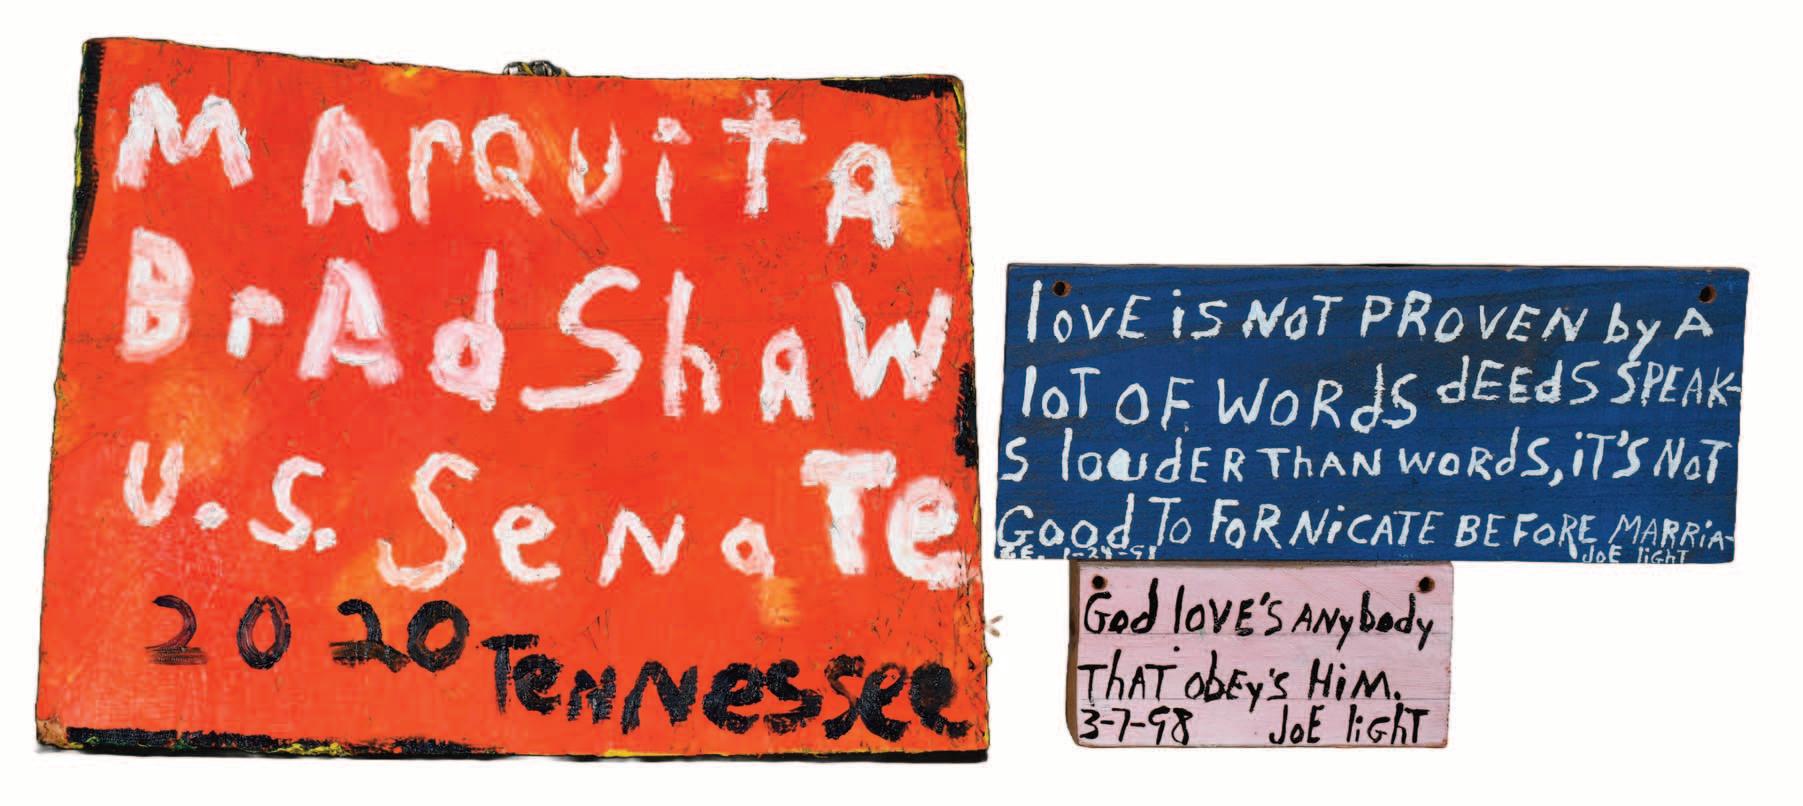 MArQuitA
BrAdShaW
U.S. SenaTe
2020 TenNessee
lovE is NOT PROVEN by A
lOT OF WORdS dEEdS SPEAK-
S louder THAN WORdS, iT'S NOT
Good To FORNiCATE BEFORE MARRiA-
GE.
JOE lighT
God lOVE'S ANybody
ThAT obEy'S HiM.
3-7-98 JoE lighT